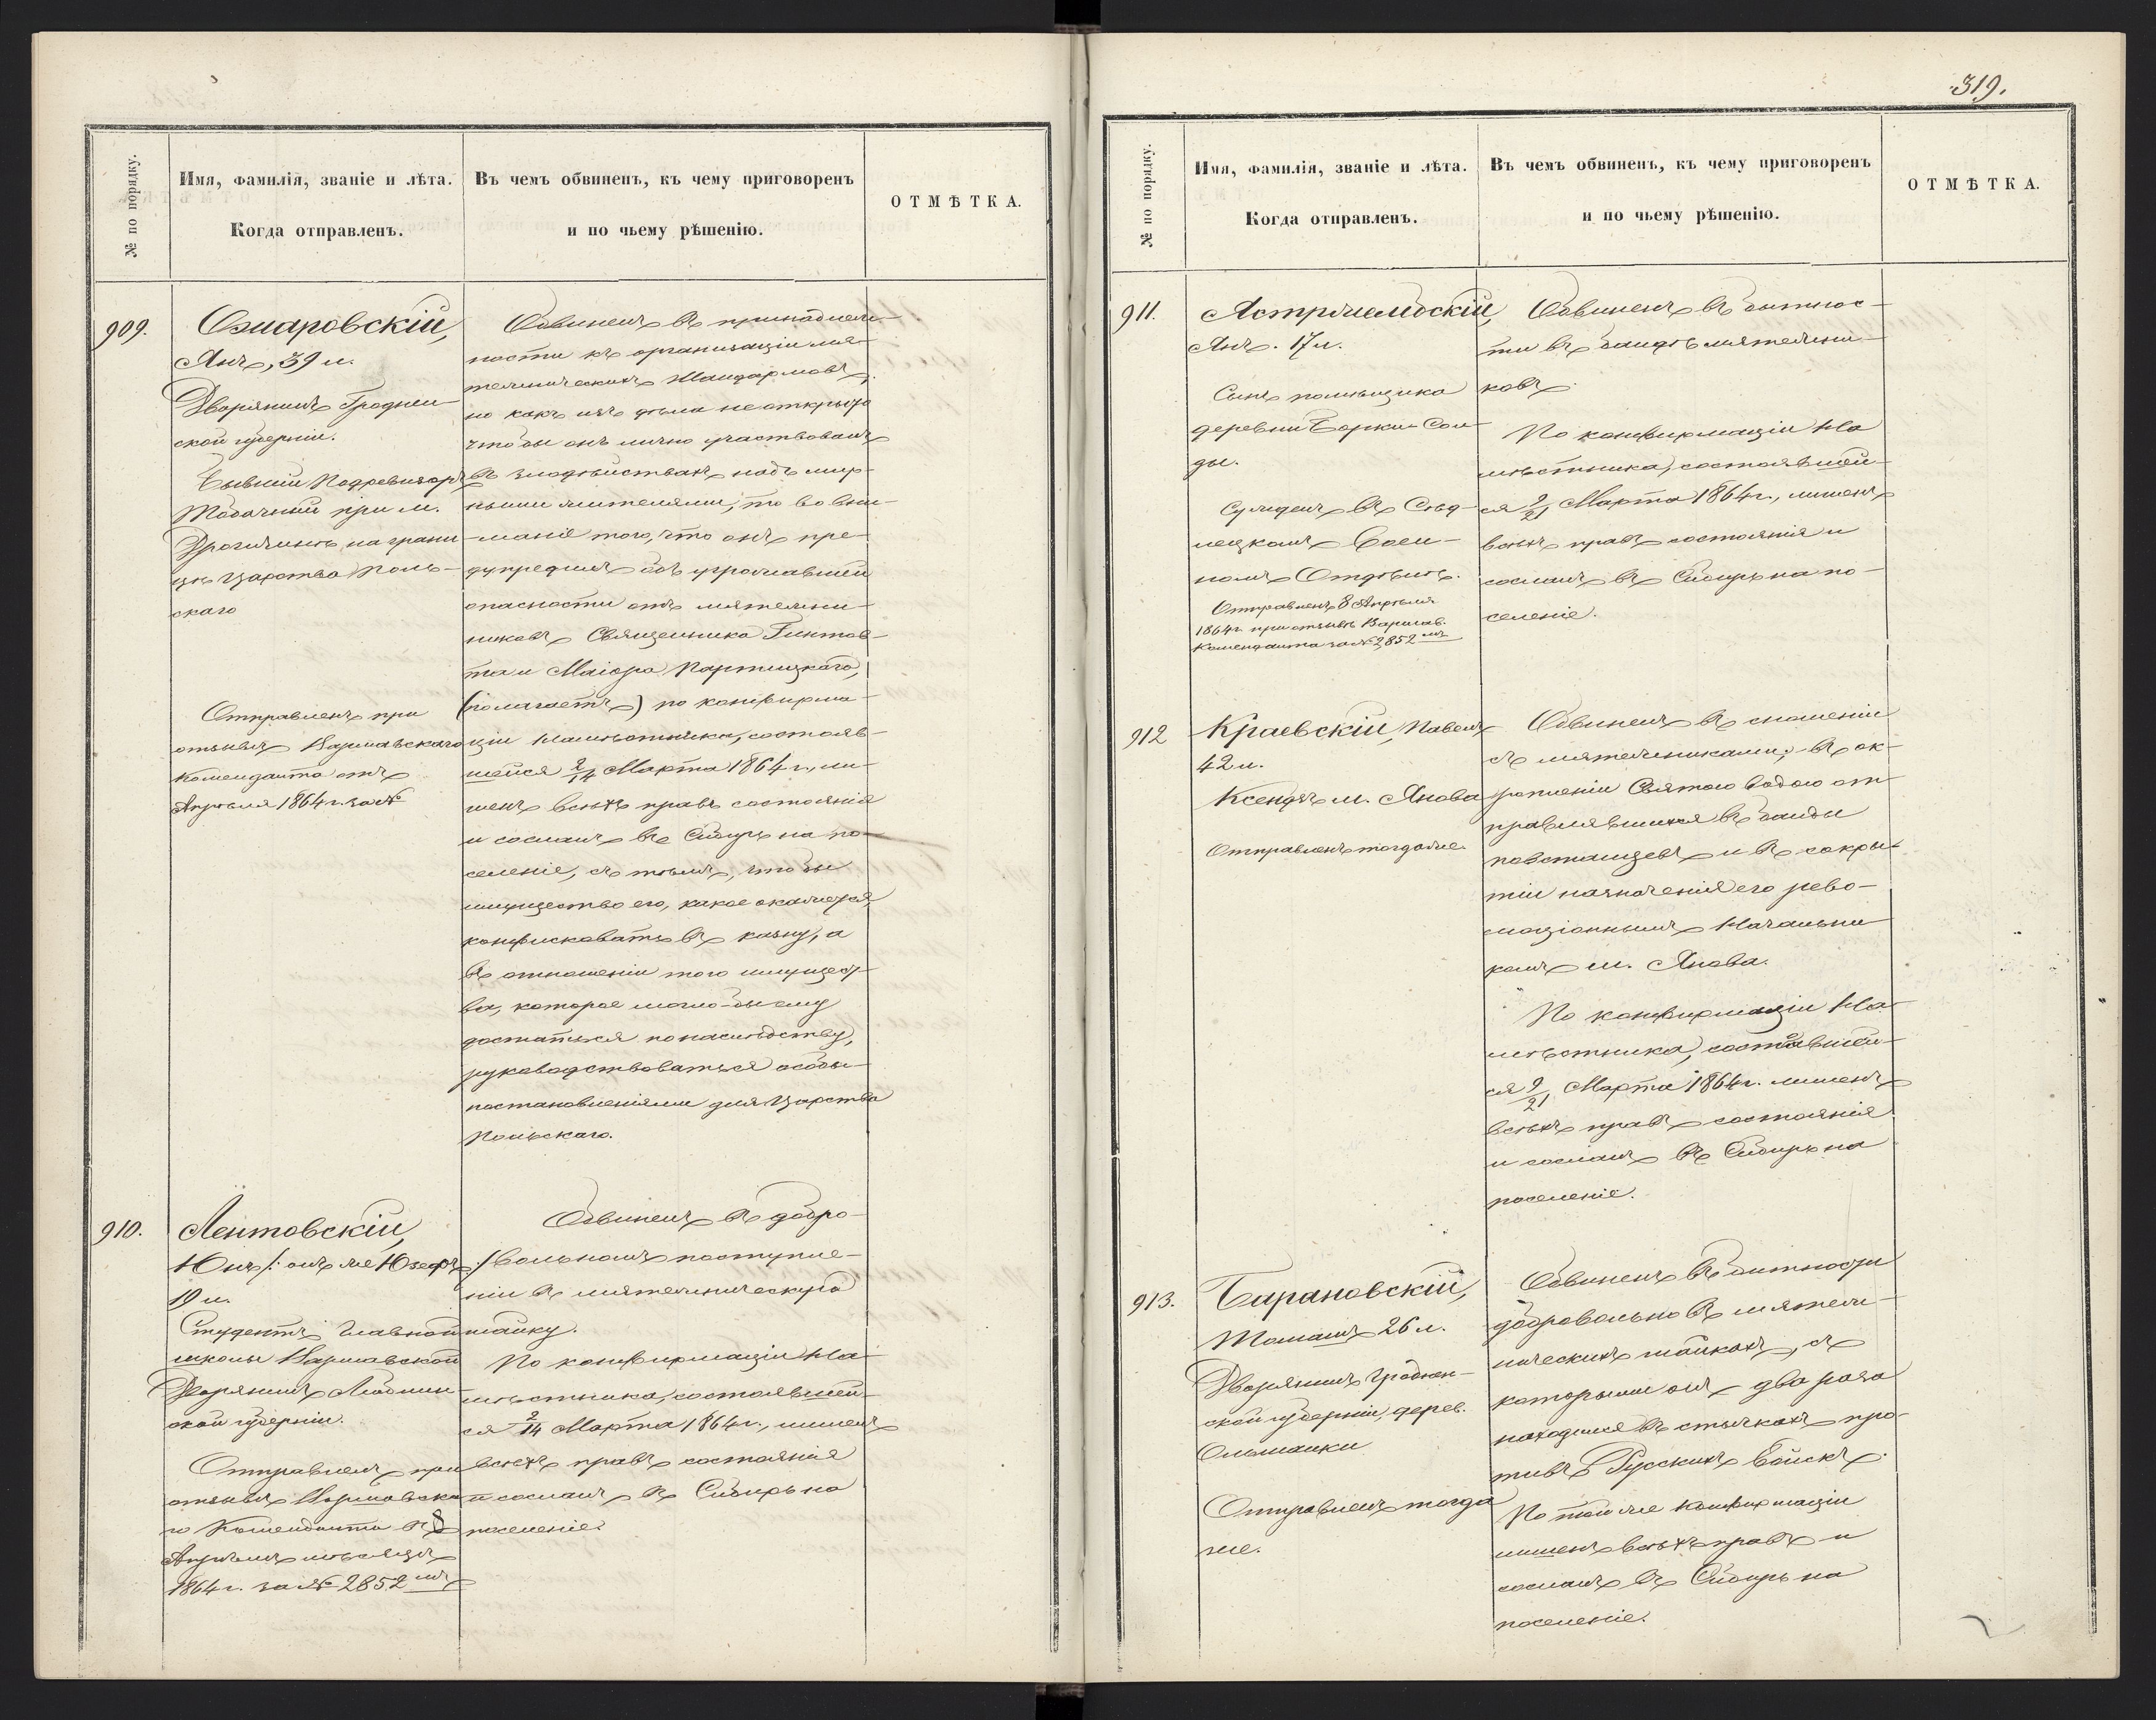 319.
№ по порядку.
Имя, фамилія, званіе и лѣта.
Когда отправленъ.
Въ чемъ обвиненъ, къ чему приговоренъ
и по чьему рѣшенію.
ОТМѢТКА.
909.
Ожаровскій,
Янъ, 39 л.
Дворянинъ Гроднен-
ской губерніи.
Бывшій Подревизоръ
Табачный при м.
Дрогичинѣ, на грани-
цѣ Царства Поль-
скаго
Отправленъ при
отзывѣ Варшавскаго
Коменданта отъ
Апрѣля 1864 г. за №
Обвиненъ въ принадлеж-
ности къ организаціи мя-
тежническихъ жандармовъ,
но какъ изъ дѣла не открыто
чтобы онъ лично участвовалъ
въ злодѣйствахъ надъ мир-
ными жителями, то во вни-
маніе того, что онъ пре-
дупредилъ объ угрожавшей
опасности отъ мятежни-
никовъ Священника Гинтов-
та и Маіора Партицкаго,
(полагаетъ) по конфирма-
ціи Намѣстника, состояв-
шейся 2/14 Марта 1864 г., ли-
шенъ всѣхъ правъ состоянія
и сосланъ въ Сибирь на по-
селеніе, съ тѣмъ, чтобы
имущество его, какое окажется,
конфисковать въ казну, а
въ отношеніи того имущест-
ва, которое могло-бы ему
достаться по наслѣдству,
руководствоваться особы-
постановленіями для Царства
Польскаго.
910.
Лентовскій,
Юнъ /: онъ же Юзефъ :/
19 л.
Студентъ Главной
школы Варшавской
Дворянинъ Люблин-
ской губерніи.
Отправленъ при
отзывѣ Варшавска-
го Коменданта въ 8
Апрѣлѣ мѣсяцѣ
1864 г. за № 2852мъ
Обвиненъ въ добро-
вольномъ поступле-
ніи въ мятежническую
шайку.
По конфирмаціи На-
мѣстника, состоявшей-
ся 2/14 Марта 1864 г., лишенъ
всѣхъ правъ состоянія
и сосланъ въ Сибирь на
поселеніе.
№ по порядку.
Имя, фамилія, званіе и лѣта.
Когда отправленъ.
Въ чемъ обвиненъ, къ чему приговоренъ
и по чьему рѣшенію.
ОТМѢТКА.
911.
Ястржембскій,
Янъ. 17 л.
Сынъ помѣщика
деревни Борки-Сол-
ды.
Сужденъ въ Сѣд-
лецкомъ Воен-
номъ Отдѣлѣ.
Отправленъ 8 Апрѣля
1864 г. при отзывѣ Варшав.
Коменданта за № 2,852мъ
Обвиненъ въ бытнос-
ти въ бандѣ мятежни-
ковъ.
По конфирмаціи На
мѣстника, состоявшей-
ся 9/21 Марта 1864 г., лишенъ
всѣхъ правъ состоянія и
сосланъ въ Сибирь на по-
селеніе.
912
Краевскій, Павелъ
42 л.
Ксендзъ м. Янова
Отправленъ тогда же.
Обвиненъ въ сношеніи
съ мятежниками, въ ок-
ропленіи Святою водою от
правлявшихся въ банды
повстанцевъ и въ сокры-
тіи назначенія его рево-
люціоннымъ Начальни
комъ м. Янова.
По конфирмаціи На-
мѣстника, состоявшей-
ся 9/21 Марта 1864 г. лишенъ
всѣхъ правъ состоянія
и сосланъ въ Сибирь на
поселеніе.
913.
Барановскій,
Томашъ 26 л.
Дворянинъ Гроднен-
ской губерніи, дерев.
Ольшанки
Отправленъ тогда
же.
Обвиненъ въ бытности
добровольно въ мятеж-
ническихъ шайкахъ, съ
которыми онъ два раза
находился въ стычкахъ про-
тивъ Русскихъ Войскъ.
По той же Конфирмаціи
лишенъ всѣхъ правъ и
сосланъ въ Сибирь на
поселеніе.